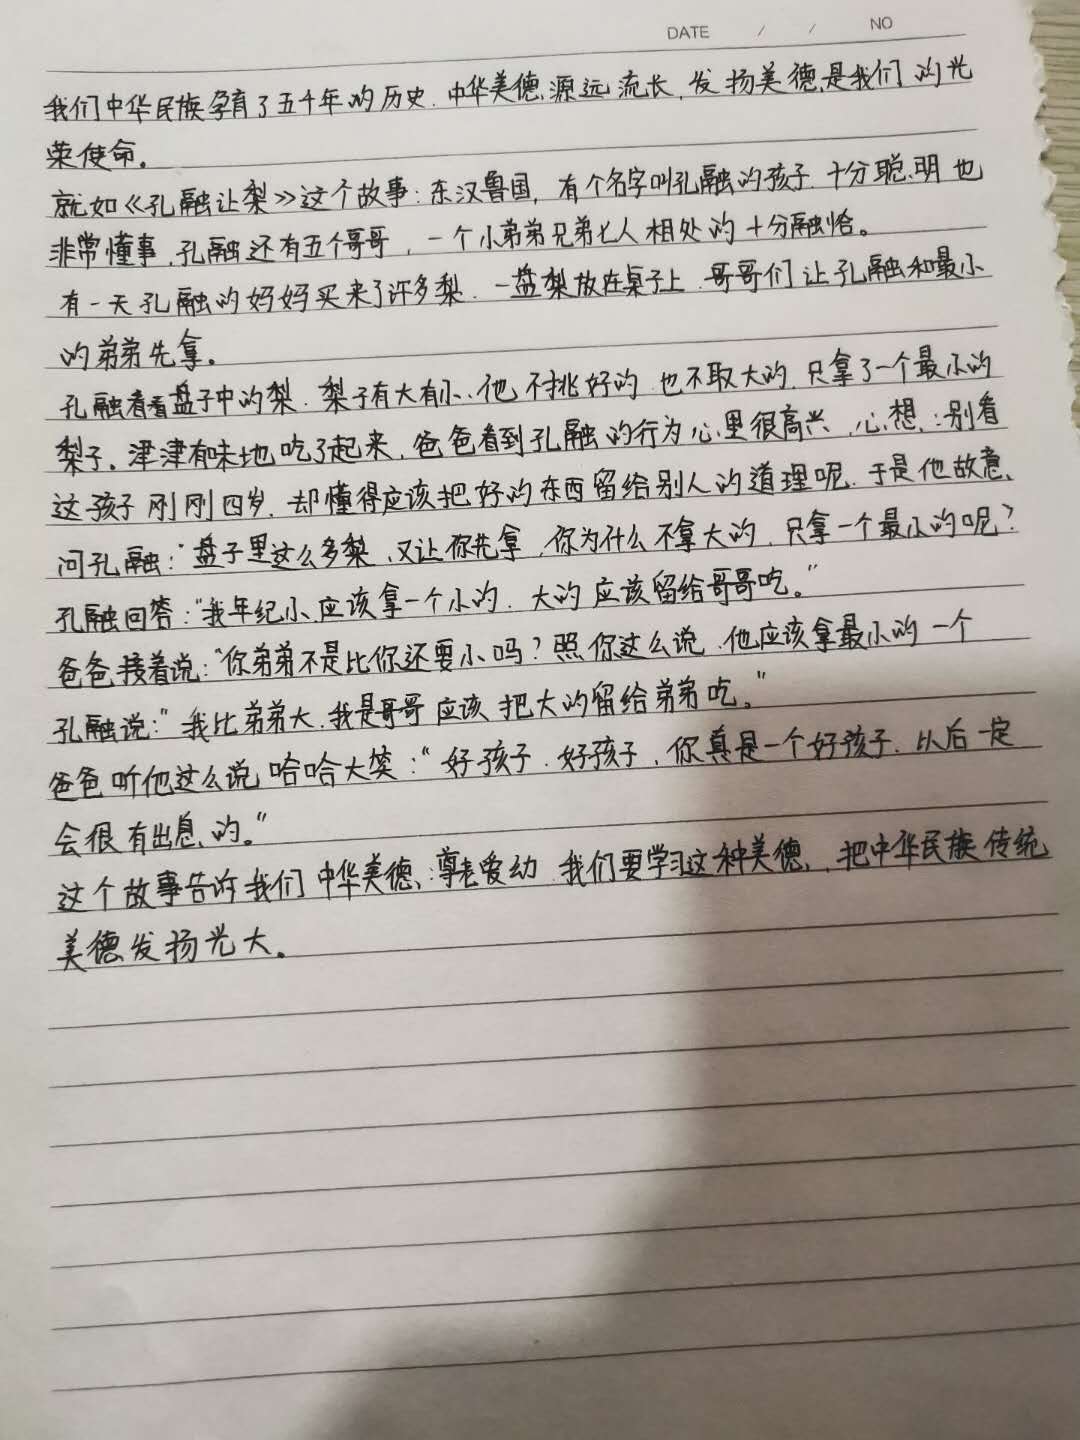 DATE / / NO
我们中华民族孕育了五千年的历史.中华美德源远流长,发扬美德是我们的光
荣使命。
就如《孔融让梨》这个故事:东汉鲁国,有个名字叫孔融的孩子.十分聪明也
非常懂事,孔融还有五个哥哥,一个小弟弟兄弟七人相处的十分融恰。
有一天孔融的妈妈买来了许多梨.一盘梨放在桌子上.哥哥们让孔融和最小
的弟弟先拿。
孔融看看盘子中的梨.梨子有大有小.他不挑好的.也不取大的.只拿了一个最小的
梨子。津津有味地吃了起来,爸爸看到孔融的行为心里很高兴,心想:别看
这孩子刚刚四岁.却懂得应该把好的东西留给别人的道理呢.于是他故意
问孔融:"盘子里这么多梨,又让你先拿,你为什么不拿大的.只拿一个最小的呢?
孔融回答:"我年纪小,应该拿一个小的.大的应该留给哥哥吃。"
爸爸接着说:"你弟弟不是比你还要小吗?照你这么说.他应该拿最小的一个
孔融说:"我比弟弟大.我是哥哥应该把大的留给弟弟吃。"
爸爸听他这么说哈哈大笑:"好孩子.好孩子,你真是一个好孩子.以后一定
会很有出息的。"
这个故事告诉我们中华美德:尊老爱幼.我们要学习这种美德,把中华民族传统
美德发扬光大。